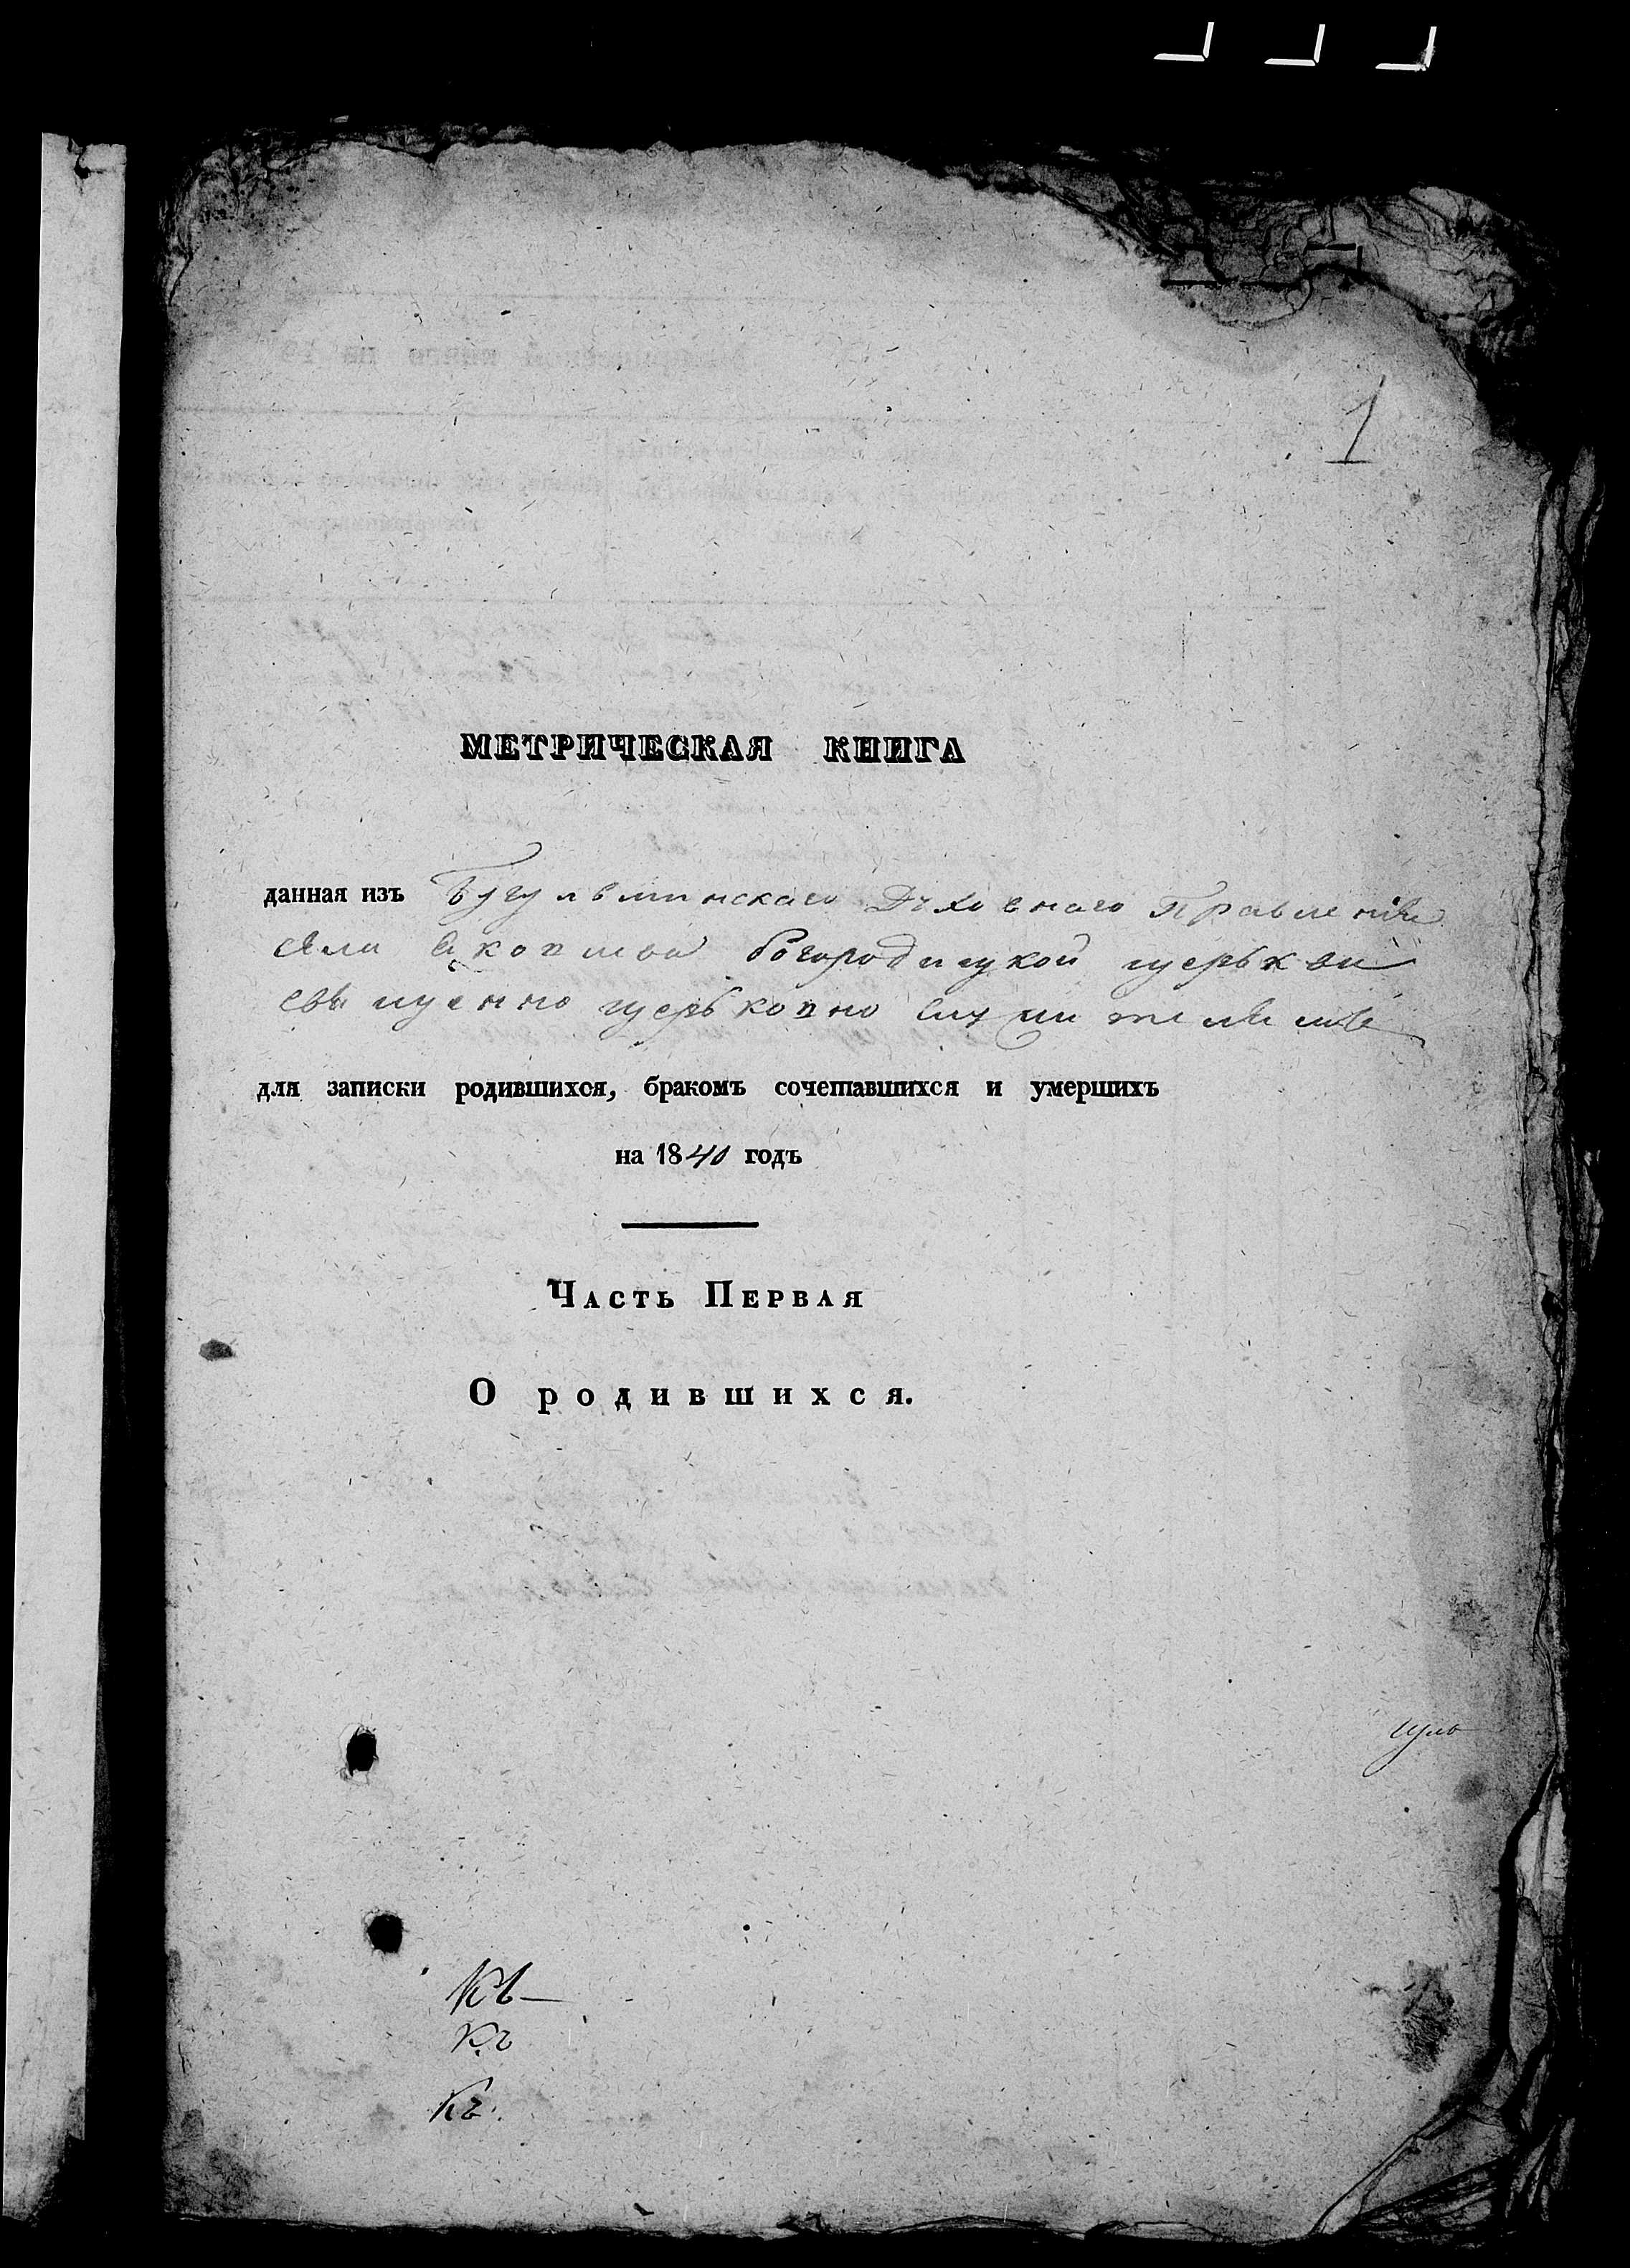 1
МЕТРИЧЕСКАЯ КНИГА
данная изъ Бугульминскаго Духовнаго Правленія
села Богородицкой церькви
священно церьковно служителямъ
для записки родившихся, бракомъ сочетавшихся и умершихъ
на 1840 годъ
Часть Первая
О родившихся.
Къ
Къ